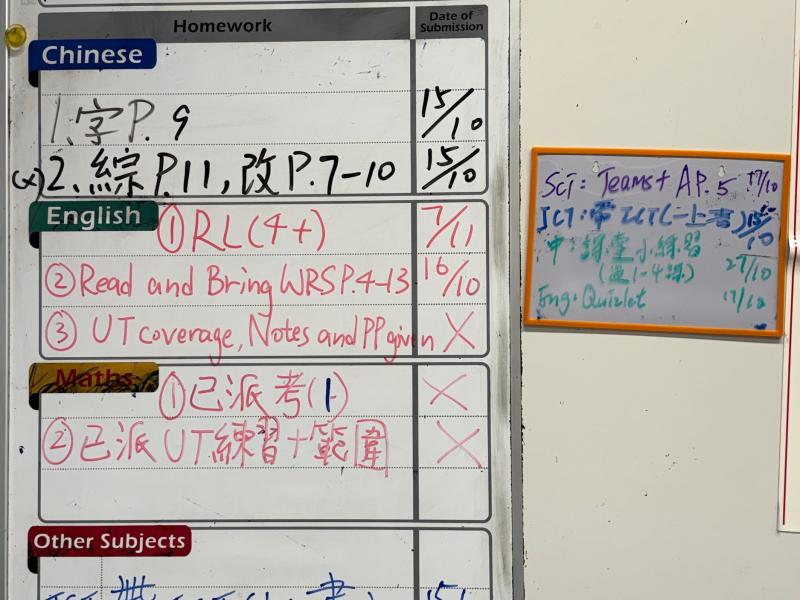 Homework
Date of Submission
Chinese
1. 字P. 9 15/10
2. 綜P.11, 改P.7-10 15/10
English
① RL(4+) 7/11
② Read and Bring WRS P.4-13 16/10
③ UT coverage, Notes and PP given X
Maths
① 已派考(1) X
② 已派UT練習+範圍 X
Other Subjects
Sci: Teams + AP.5 17/10
ICT: 帶ICT(一上書) 15/10
中: 課堂小練習 27/10
(1-4課)
Eng: Quizlet 17/10